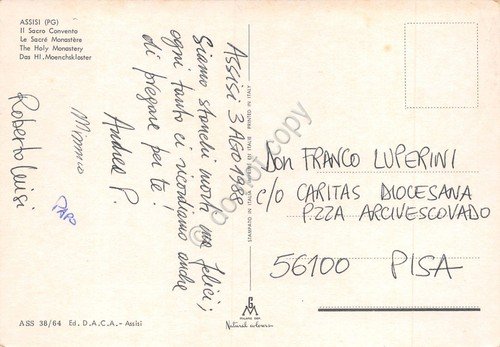 ASSISI (PG)
Il Sacro Convento
Le Sacré Monastère
The Holy Monastery
Das HI. Moenchskloster
Assisi 3 AGO 1988
Siamo stanchi morti ma felici;
ogni tanto ci ricordiamo anche
di pregare per te!
Andrea P.
Mimmo
PAPO
Roberto Luisi
STAMPATO IN ITALY
PRINTED IN ITALY
do not copy
Don FRANCO LUPERINI
c/o CARITAS DIOCESANA
P.ZZA ARCIVESCOVADO
56100 PISA
G
M
Natural colorcor
ASS 38/64 Ed. D.A.C.A. - Assisi